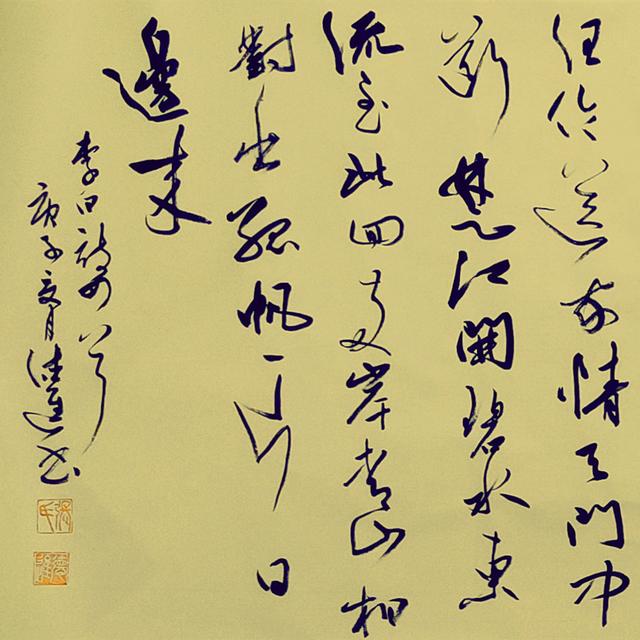 汪倫送我情天門中
斷楚江開碧水東
流至此回兩岸青山相
對出孤帆一片日
邊来
李白詩兩首
庚子夏月書